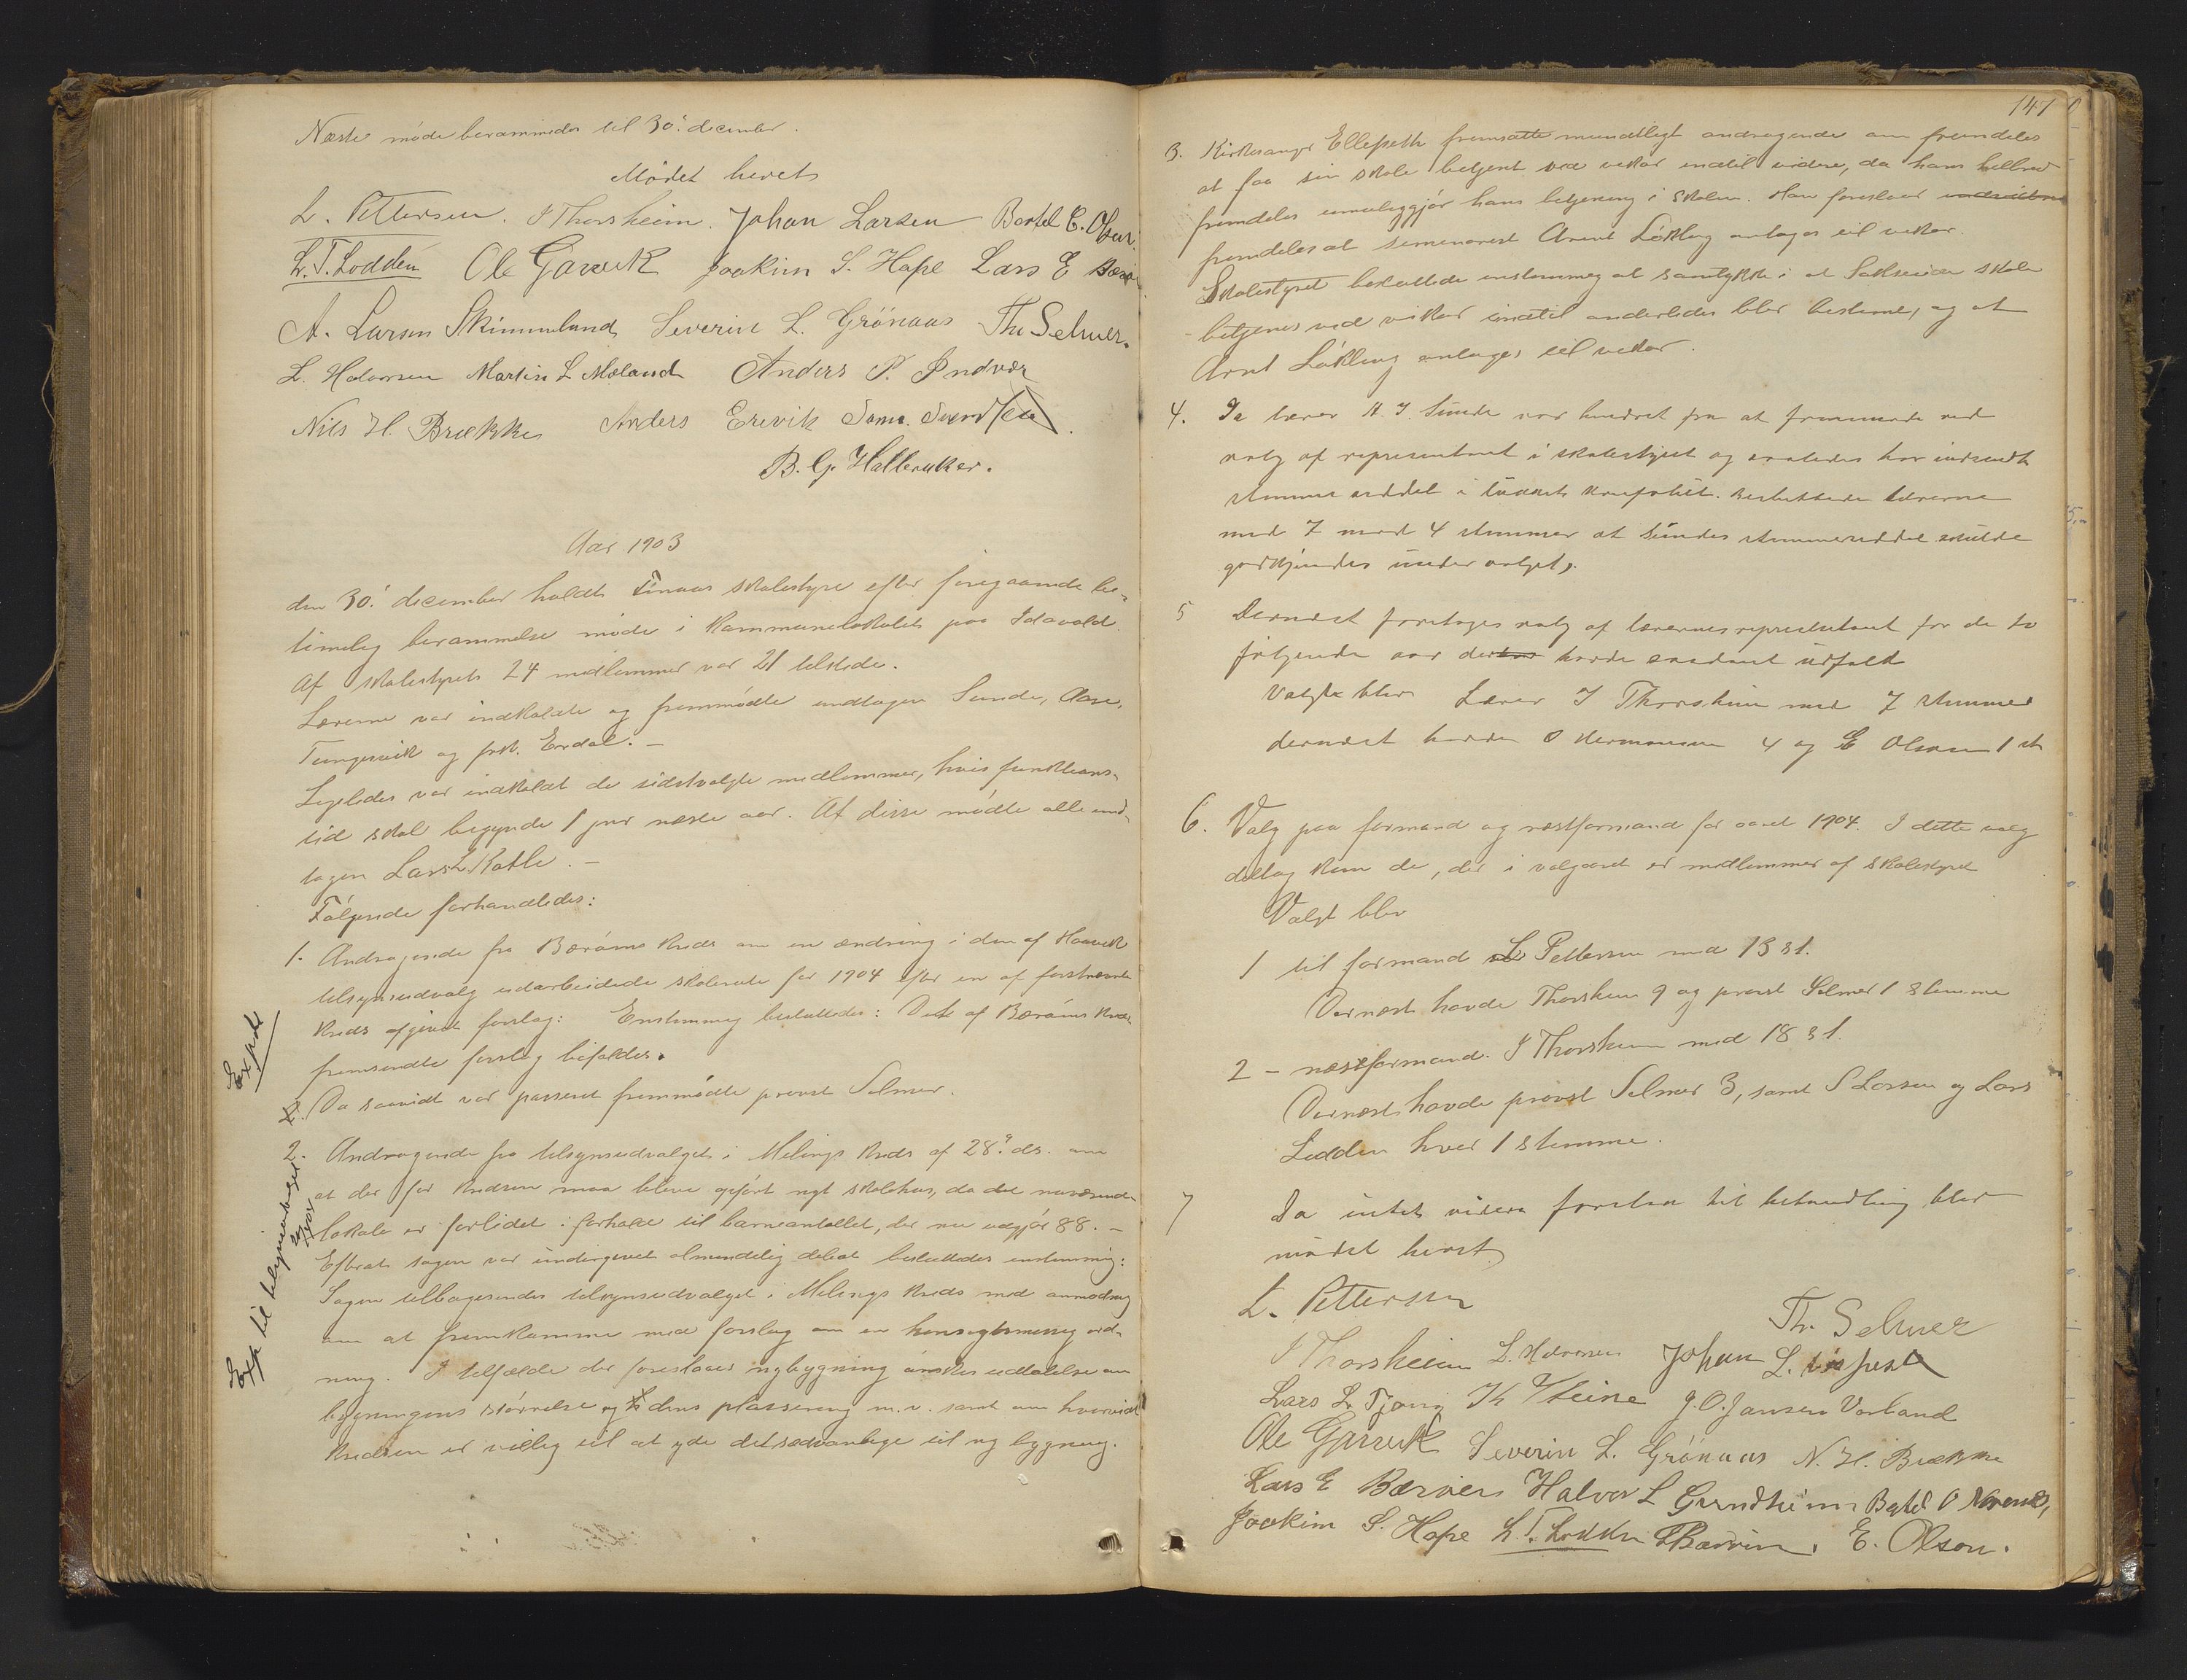 Næste møde berammedes til 30. december.
Mødet hevet
L. Pettersen. I Thorsheim. Johan Larsen Bertel E. Olsen.
L. T. Lodden Ole Garvik Joakim S. Hope Lars E Bærøe
A. Larsen Skimmeland Severin L. Grönaas Th Selmer.
L. Halvorsen Martin L Mæland Anders P. Indvær
Nils H. Brække Anders Erevik Sams. Svendsen
B. G. Halleraker.
Aar 1903
den 30. december holdt Finaas skolestyre efter foregaaende be-
timelig berammelse møde i kommunelokalet paa Idavold.
Af skolestyrets 24 medlemmer var 21 tilstede.
Lærerne var indkaldte og fremmødte undtagen Sunde, Aase,
Tungesvik og frk. Erdal. –
Ligeledes var indkaldt de sidstvalgte medlemmer, hvis funktions-
tid skal begynde 1 jnr næste aar. Af disse mødte alle und-
tagen Lars L Katle. –
Følgende forhandledes:
1. Andragende fra Bærøens kreds om en ændring i den af Haavik
tilsynsudvalg udarbeidede skolerute for 1904 efter en af førstnævnte
kreds afgivet forslag: Enstemmig besluttedes: Det af Bærøens kreds
fremsendte forslag bifaldes.
Exped
2. Da saavidt var passeret fremmødte provst Selmer.
2. Andragende fra tilsynsudvalget i Melings kreds af 28. ds. om
at der for kredsen maa blive opført nyt skolehus, da det nuværende
lokale er forlidet i forhold til barneantallet, der nu udgjør 88. –
Efterat sagen var undergivet almindelig debat besluttedes enstemmig:
Sagen tilbagesendes tilsynsudvalget i Melings kreds med anmodning
om at fremkomme med forslag om en hensigtsmessig ord-
ning. I tilfælde der foreslaaes nybygning ønskes udtalelse om
bygningens størrelse og dens plassering m.v. samt om hvorvidt
kredsen er villig til at yde det sædvanlige til ny bygning.
Exp til
147
3. Kirkesanger Ellefseth fremsatte mundtligt andragende om fremdeles
at faa sin skole betjent ved vikar indtil videre, da hans helbred
fremdeles umuliggjør hans betjening i skolen. Han foreslaar
fremdeles at seminarist Arent Løkling antages til vikar.
Skolestyret besluttede enstemmig at samtykke i at skole
betjenes ved vikar indtil anderledes blir bestemt, og at
Arnt Løkling antages til vikar.
4. Da lærer N. J. Sunde var hindret fra at fremmøde ved
valg af representant i skolestyret og saaledes har indsendt
stemmeseddel i lukket konvolut. besluttede lærerne
med 7 mod 4 stemmer at Sundes stemmeseddel skulde
godkjendes under valget.
5 Dernæst foretoges valg af lærernes representant for de to
følgende aar der havde saadant udfald
Valgt blev Lærer I Thorsheim med 7 stemmer
dernæst havde O Hermansen 4 og E Olsen 1 st
6. Valg paa formand og næstformand for aaret 1904. I dette valg
deltog kun de, der i valgaaret er medlemmer af skolestyret
Valgt blev
1 til formand L Pettersen med 13 st.
Dernæst havde Thorsheim 9 og provst Selmer 1 stemme
2 – næstformand. I Thorsheim med 18 st.
Dernæst havde provst Selmer 3, samt S Larsen og Lars
Lodden hver 1 stemme.
7 Da intet videre forelaa til behandling blev
mødet hevet
L. Pettersen
Th. Selmer
I Thorsheim L. Halvorsen Johan L.
Lars L. Tjong K Steine J. O. Jansen Vorland
Ole Garvik Severin L. Grönaas N. H. Brække
Lars E Bærøen Halvor L Grindheim Bertel O
Joakim S. Hope L. T. Lodden E. Olson.